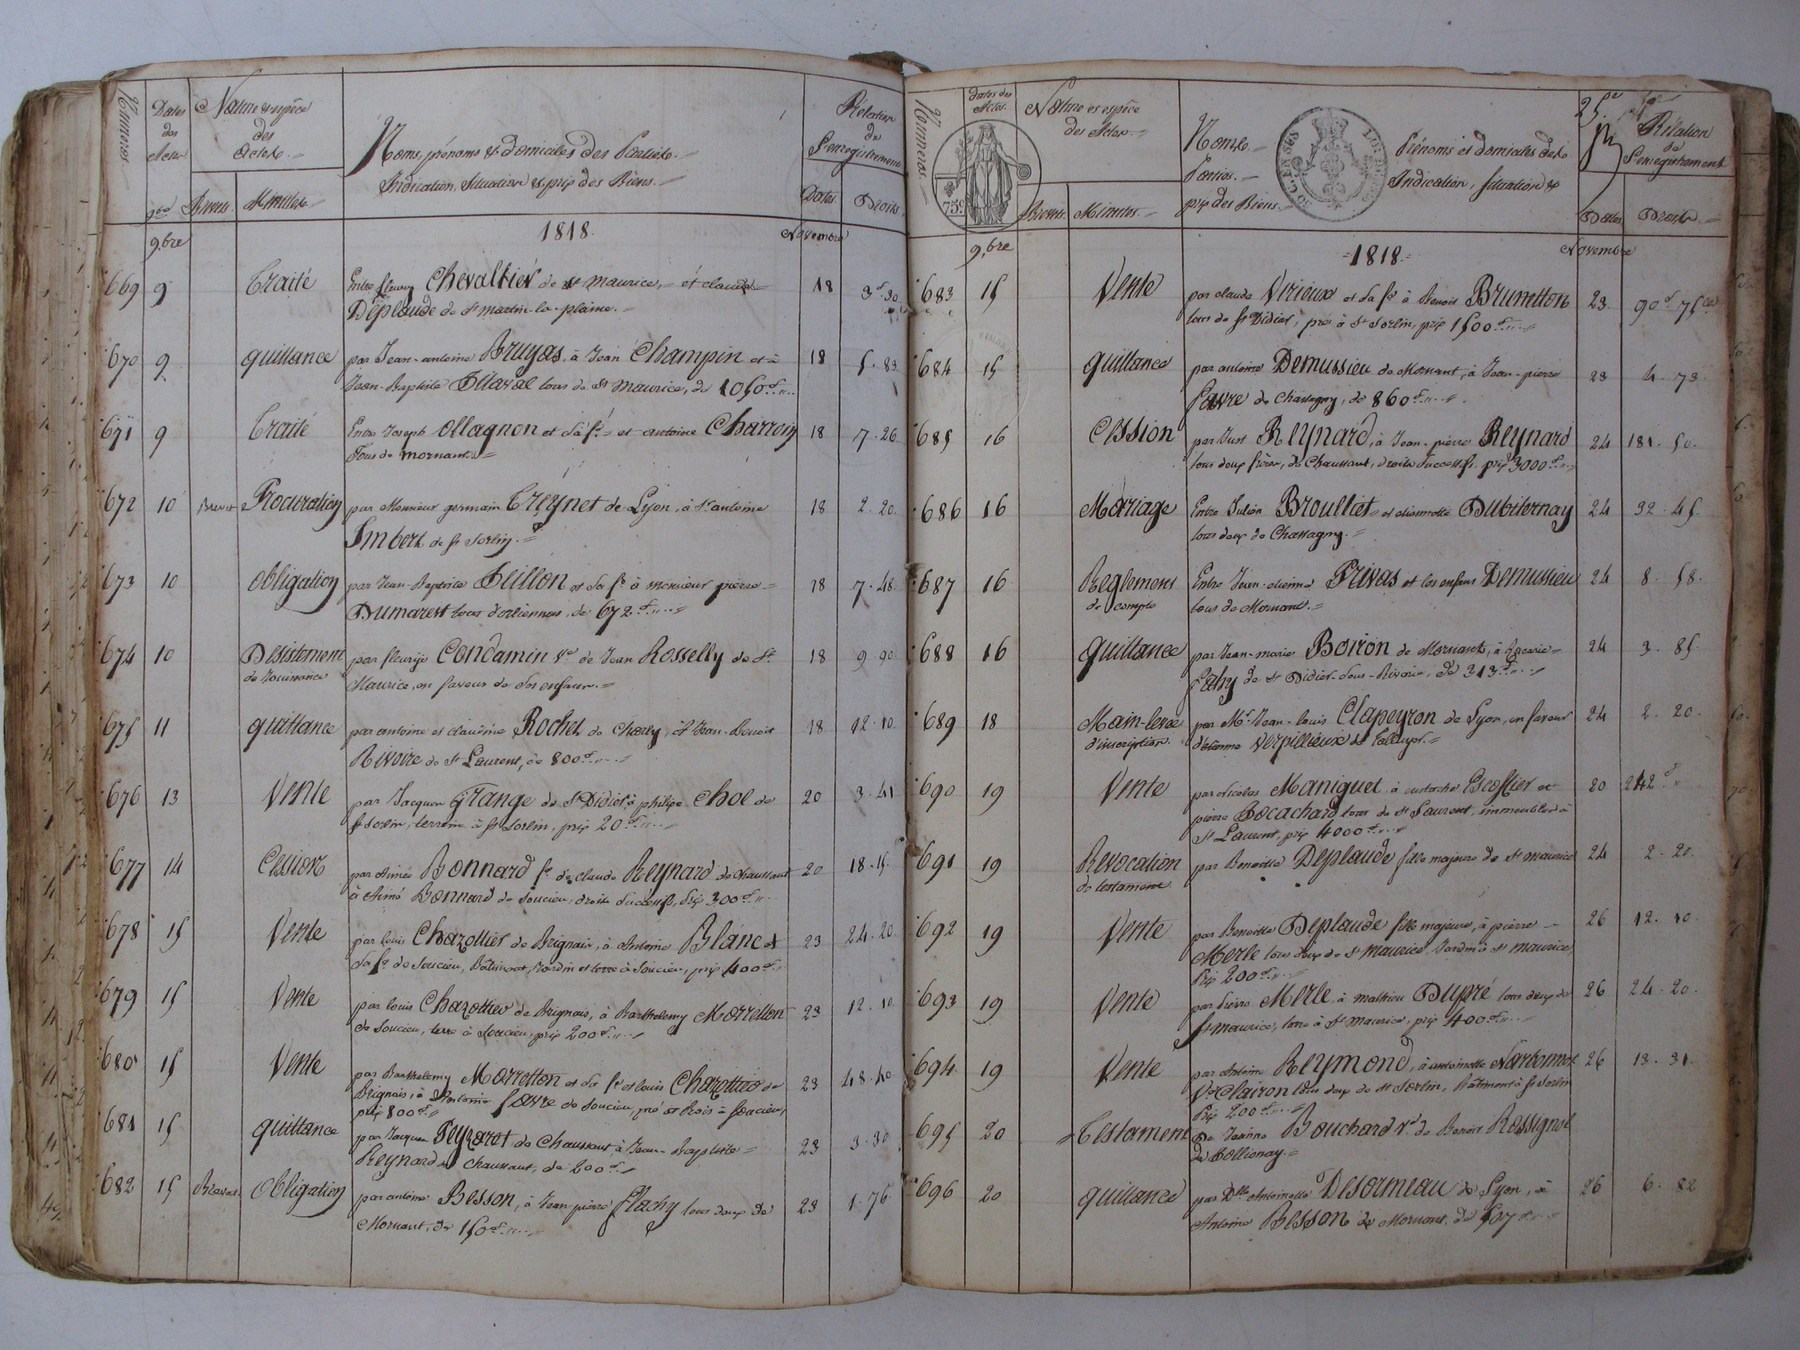 Numéros.
Dates des Actes
Nature & espèce des Actes.
Noms, prénoms & domiciles des Parties.
Indication, Situation & prix des Biens.
Relation de l'enregistrement
9bre Brevets Minutes
Dates Droits
9.bre 1818. Novembre
669 9 Traité Entre fleury Chevallier de St maurice, et claude 18 3f.30
Déplaude de St martin-la-plaine.
670 9 quittance par Jean-antoine Bruyas, à Jean Champin et à 18 5.83
Jean-Baptiste tous de St maurice, de 1050f.
671 9 Traité Entre Joseph Ollagnon et sa fe et antoine Charroin 18 7.26
Tous de mornant.
672 10 Brevet Procuration par Monsieur germain Treynet de Lyon, à Sr antoine 18 2.20
Imbert de St Sorlin.
673 10 Obligation par Jean-Baptiste Teillon et sa fe à monsieur pierre 18 7.48
Dumarest tous d'orliennas, de 672f.
674 10 Désistement par fleurye Condamin Ve de Jean Rosselly de St 18 9 90
de Jouissance Maurice, en faveur de ses enfans.
675 11 quittance par antoine et claudine Rochet de Charly, à Jean-Benoit 18 12.10
Rivoire de St Laurent, de 800f.
676 13 Vente par Jacques Grange de St Didier à philipe Chol de 20 3.41
St Sorlin, terrein à St Sorlin, prix 20f.
677 14 Cession par Aimée Bonnard fe de claude Reynard de Chaussant 20 18.15
à Aimé Bonnard de Soucieu, droits successifs, prix 300f.
678 15 Vente par louis Charottier de Brignais, à Antoine Blanc & 23 24.20
sa fe de Soucieu, Bâtiment, Jardin et terre à Soucieu, prix 400f.
679 15 Vente par louis Charottier de Brignais, à Barthelemy Morretton 23 12.10
de Soucieu, terre à Soucieu, prix 200f.
680 15 Vente par Barthelemy Morretton et sa fe et louis Charottier de 23 48.40
Brignais, à Antoine favre de Soucieu, pré et Bois à Soucieu,
prix 800f.
681 15 quittance par Jacques Peyzaret de Chaussant, à Jean-Baptiste 23 3.30
Reynard de chaussant, de 600f.
682 15 Brevet Obligation par antoine Besson, à Jean pierre flachy tous deux de 23 1.76
Mornant, de 150f.
Numéros.
Dates des Actes.
Nature et espèce des Actes.
Noms, Prénoms et domiciles des
Parties. Indication, situation &
prix des Biens.
Relation de l'enregistrement
Brevets Minutes
Dates Droits
75c
9.bre 1818. Novembre
683 15 Vente par claude Virieux et sa fe à Benoit Brunetton 23 90f.75c
tous de St Didier, pré à St Sorlin, prix 1500f.
684 15 quittance par antoine Demussieu de Mornant, à Jean-pierre 23 4.73
favre de Chassagny, de 860f.
685 16 Cession par Just Reynard, à Jean-pierre Reynard 24 181.50
tous deux frères, de Chaussant, droits successifs, prix 3000f.
686 16 Mariage Entre Julien Broulliet et étiennette Dubiternay 24 32.45
tous deux de Chassagny.
687 16 Reglement Entre Jean-etienne Privas et les enfans Demussieu 24 8.58
de compte tous de Mornant.
688 16 quittance par Jean-marie Boiron de Mornant, à 24 3.85
flachy de St Didier-sous-Riverie, de 313f.
689 18 Main-levée par Mr Jean-louis Clapeyron de Lyon, en faveur 24 2.20
d'inscription. d'étienne Verpillieux de Taluyers.
690 19 Vente par Nicolas Maniguet à eustache Escoffier et 20 242f
pierre Bocachard tous de St Laurent, immeubles à
St Laurent, prix 4000f.
691 19 Revocation par Benoite Deplaude fille majeure de St maurice 24 2.20
de testament
692 19 Vente par Benoite Deplaude fille majeure, à pierre 26 12.10
Merle tous deux de St maurice, Jardin à St maurice,
Prix 200f.
693 19 Vente par pierre Merle, à mathieu Dupré tous deux de 26 24.20
St maurice, terre à St Maurice, prix 400f.
694 19 Vente par Antoine Reymond, à antoinette Narbonnet 26 13.31
Ve Clairon tous deux de St Sorlin, Bâtiment à St Sorlin
Prix 200f.
695 20 Testament De Jeanne Bouchard Ve de Benoit Rossignol
de Pollionay.
696 20 quittance par Dlle Antoinette Desormeau de Lyon, à 26 6.82
Antoine Besson de Mornant, de 507f.